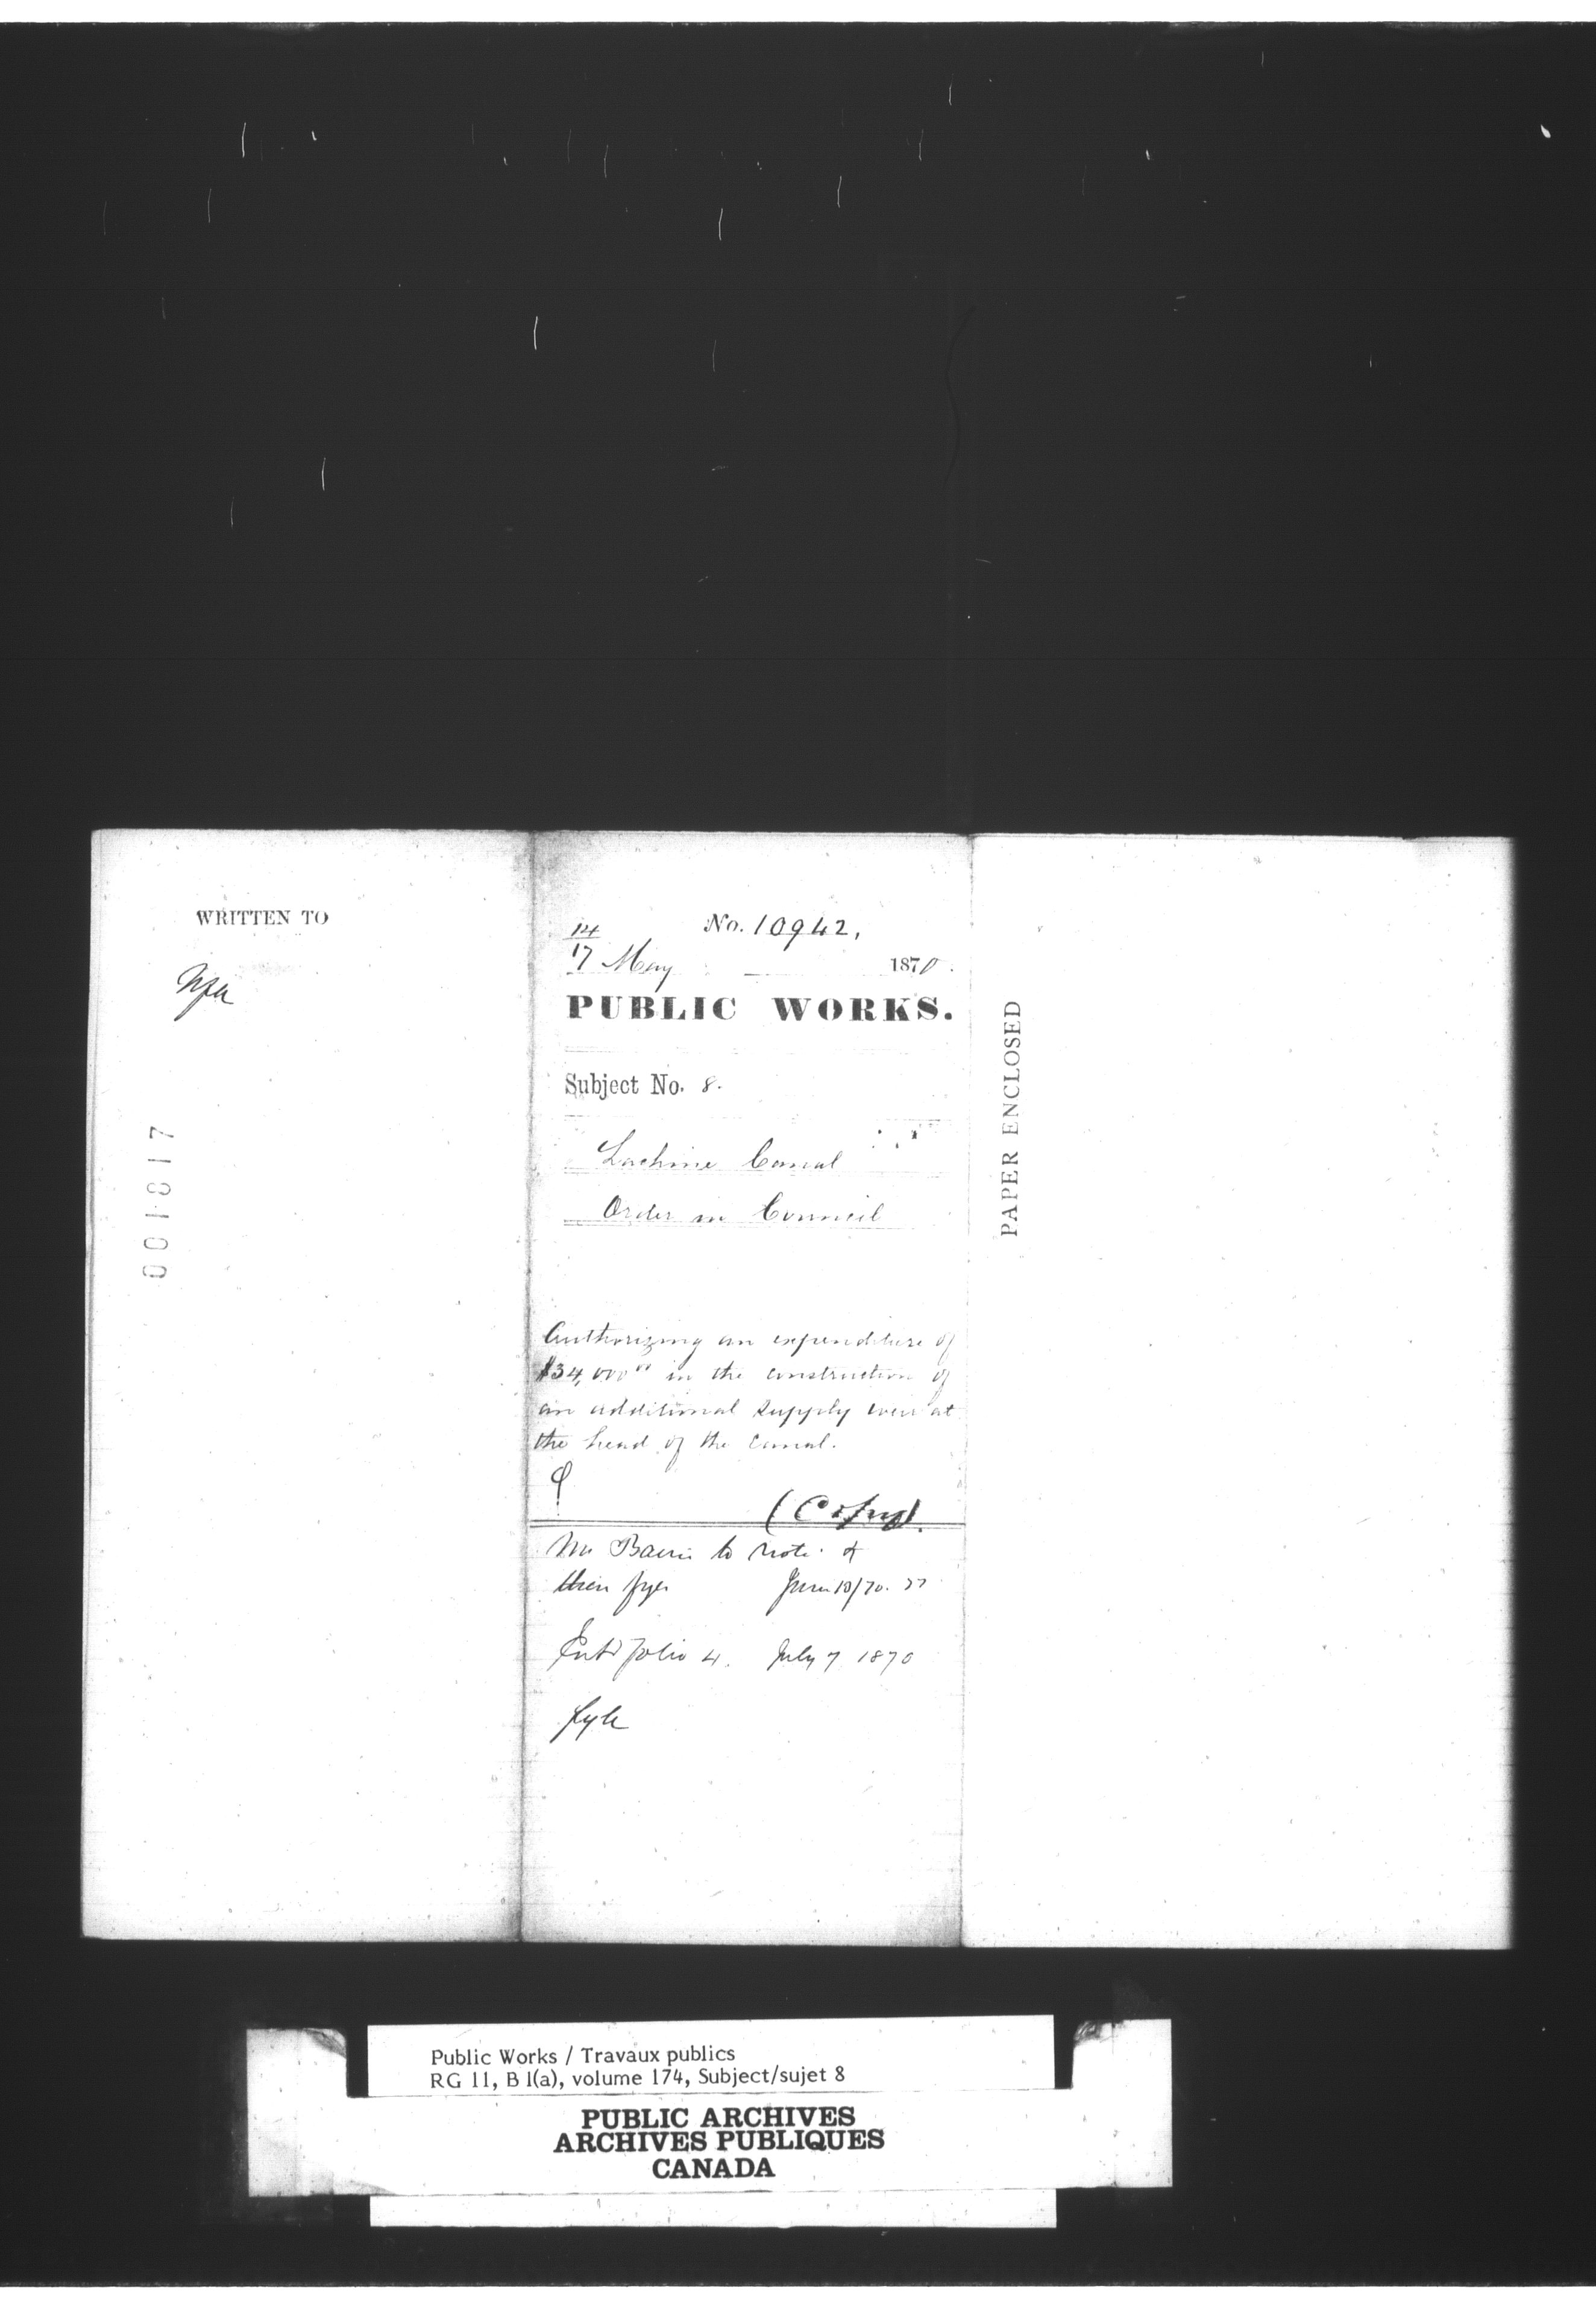 WRITTEN TO
001817
No. 10942,
14
17 May 1870.
PUBLIC WORKS.
Subject No. 8.
Lachine Canal
Order in Council
Authorizing an expenditure of
$34,000 00 in the construction of
an additional supply weir at
the head of the Canal.
(Copy).
Mr to note &
then fyle June 18/70.
Entd folio 4. July 7 1870
fyle
PAPER ENCLOSED
Public Works / Travaux publics
RG 11, B 1(a), volume 174, Subject/sujet 8
PUBLIC ARCHIVES
ARCHIVES PUBLIQUES
CANADA